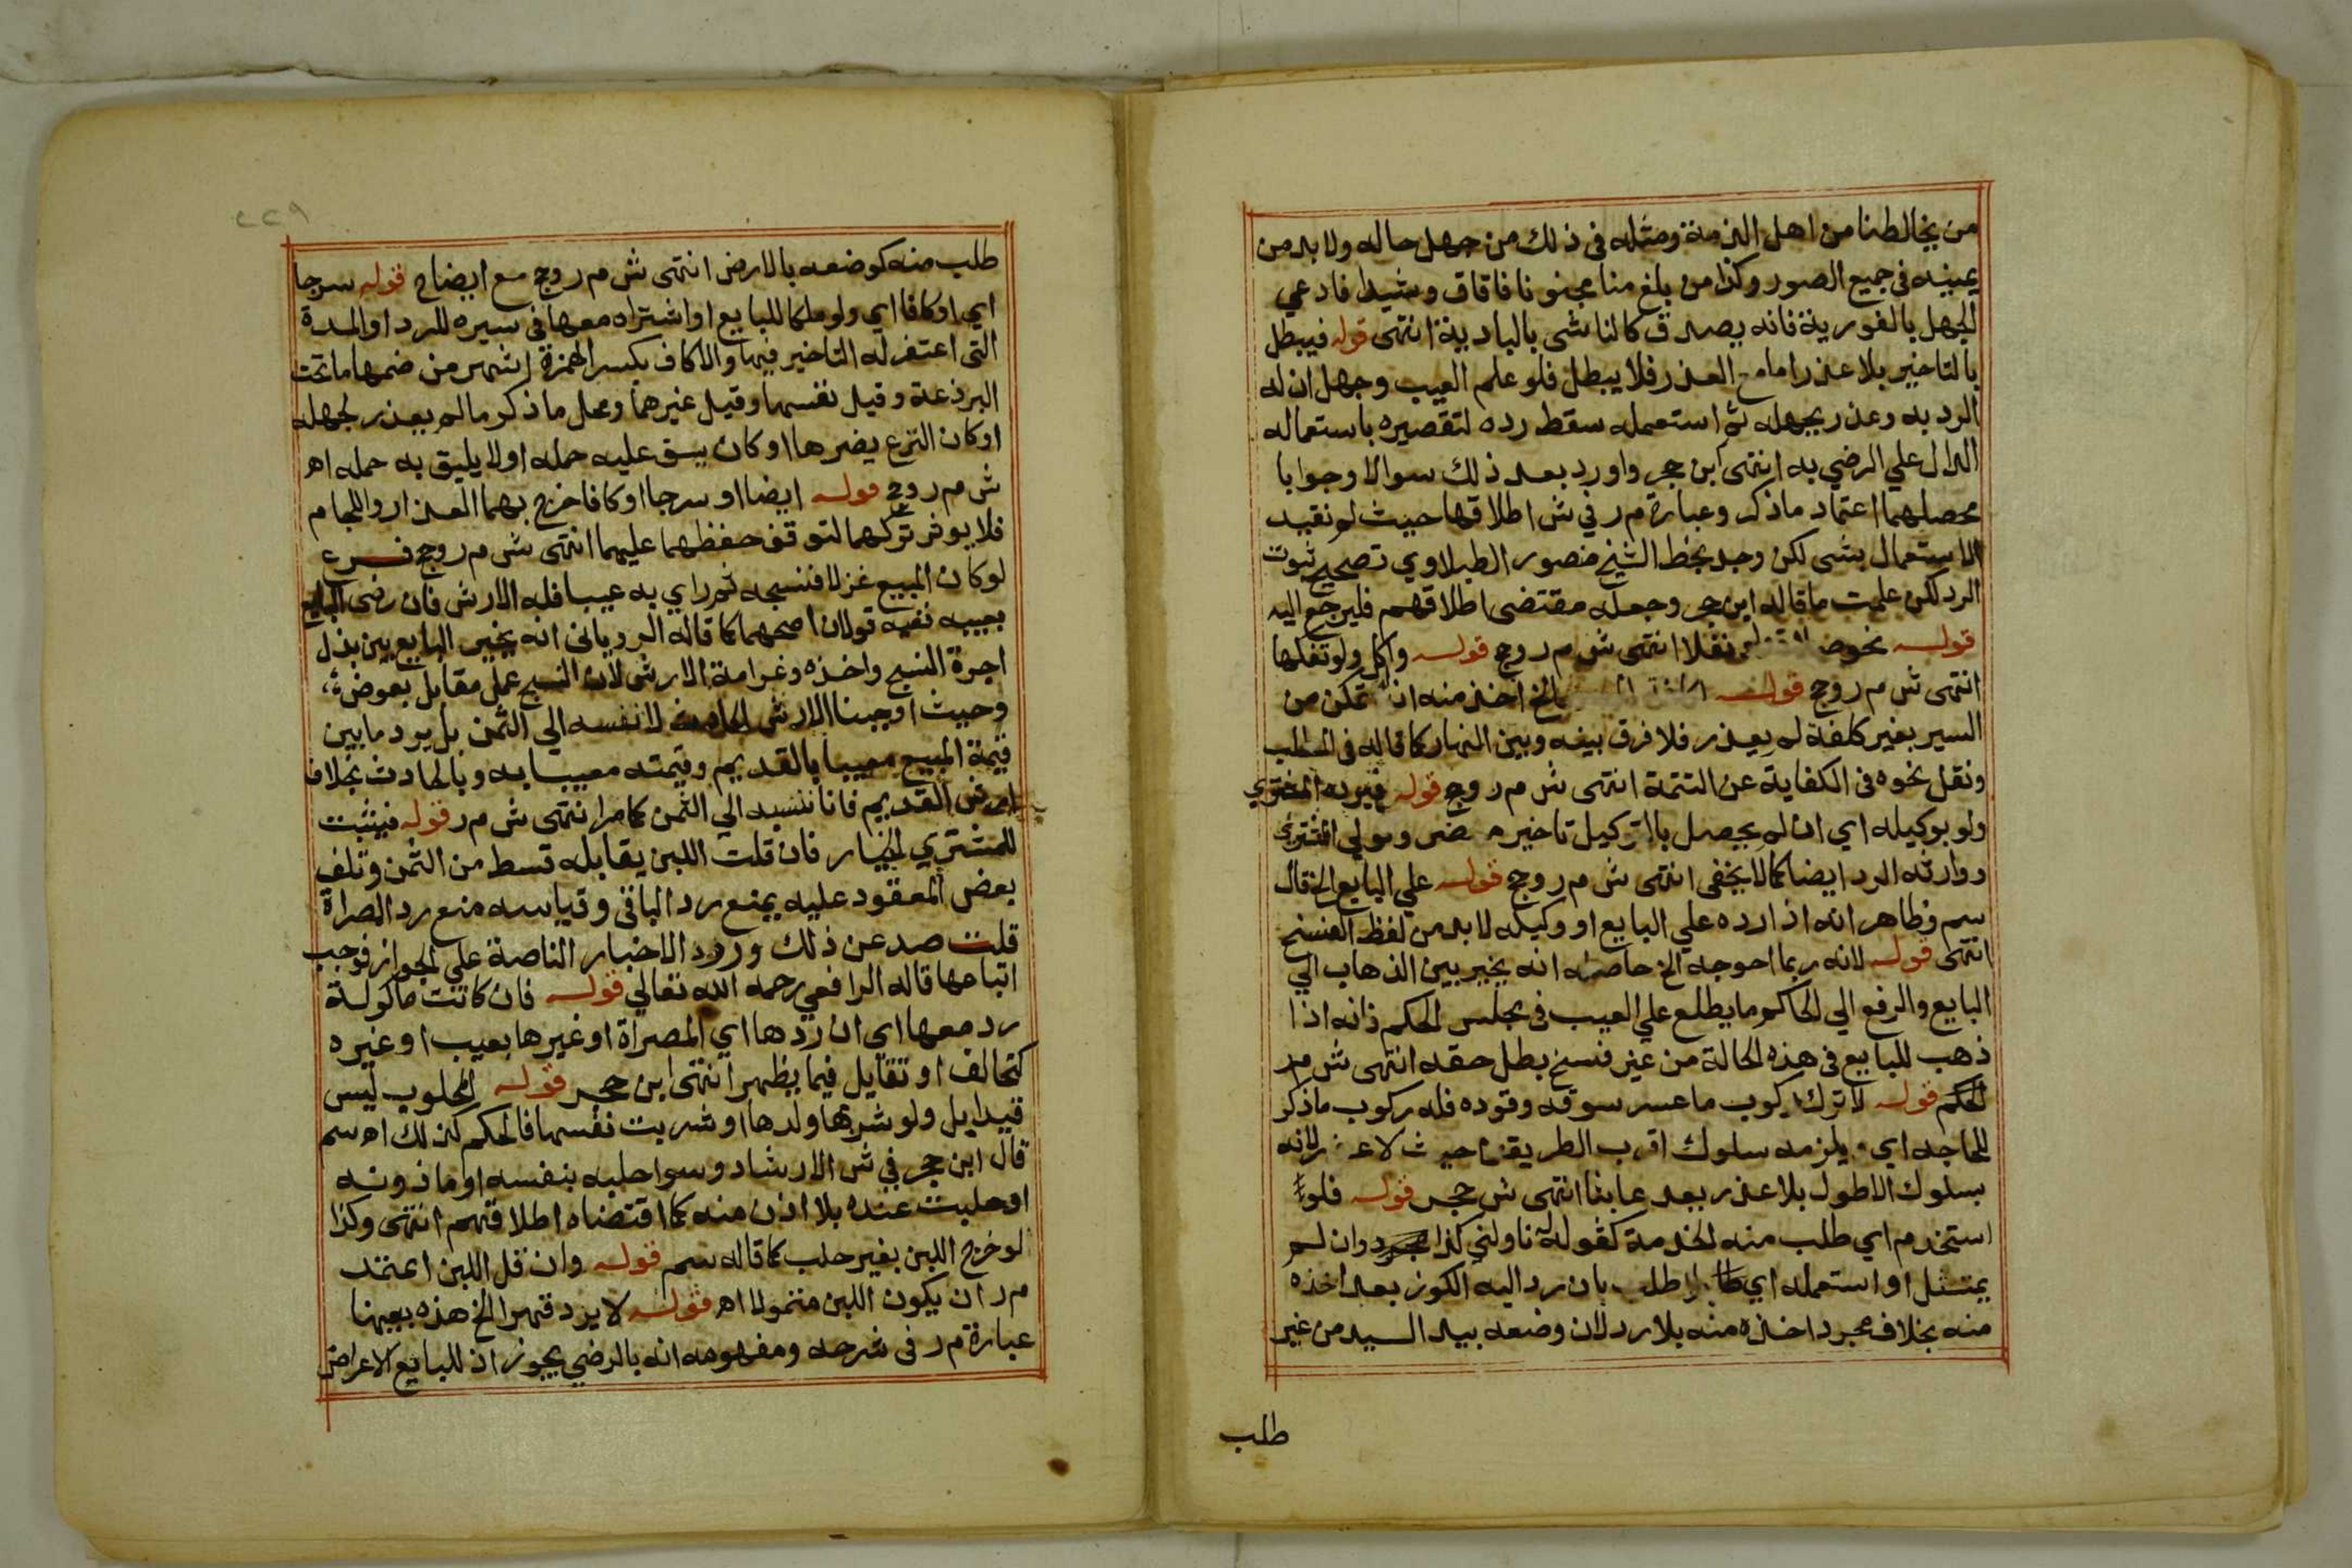 من يخالطنا من اهل الذمة ومثله في ذلك من جهل حاله ولا بد من
يمينه في جميع الصور وكذا من بلغ منا مجنونا فافاق رشيدا فادعي
الجهل بالفورية فانه يصدق كالناشي بالبادية انتهى قوله فيبطل
بالتاخير بلا عذر اما مع العذر فلا يبطل فلو علم العيب وجهل ان له
الرد به وعذر بجهله ثم استعمله سقط رده لتقصيره باستعماله
الدال علي الرضي به انتهى ابن حجر واورد بعد ذلك سوالا وجوابا
محصلهما اعتماد ماذكر وعبارة م ر في ش اطلاقها حيث لم تقيد
الاستعمال بشي لكن وجد بخط الشيخ منصور الطبلاوي تصحيح ثبوت
الرد لكن علمت ما قاله ابن حجر وجعله مقتضى اطلاقهم فليرجع اليه
قوله نحو نفلا انتهى ش م ر وحج قوله واكل ولو تفكها
انتهى ش م ر وحج قوله الخ اخذ منه انه تمكن من
السير بغير كلفة لم يعذر فلا فرق بينه وبين النهار كما قاله في المطلب
ونقل نحوه في الكفاية عن التتمة انتهى ش م ر وحج قوله فيرده المشتري
ولو بوكيله اي ان لم يحصل بالتوكيل تاخير مضر وولي المشتري
ووارثه الرد ايضا كما لا يخفى انتهى ش م ر وحج قوله علي البايع الخ قال
سم وظاهر انه اذا رده علي البايع او وكيله لا بد من لفظ الفسخ
انتهى قوله لانه ربما احوجه الخ حاصله انه يخير بين الذهاب الي
البايع والرفع الي الحاكم وما يطلع علي العيب في مجلس الحكم فانه اذا
ذهب للبايع في هذه الحالة من غير فسخ بطل حقه انتهى ش م ر
لحكم قوله لا ترك ركوب ما عسر سوقه وقوده فله ركوب ماذكر
للحاجه اي يلزمه سلوك اقرب الطريقين حيث لا عذر لانه
بسلوك الاطول بلا عذر يعد عابثا انتهى ش حجر قوله فلو
استخدم اي طلب منه الخدمة كقوله ناولني كذا وان لم
يمتثل او استعمله اي بلا طلب بان رد اليه الكوز بعد اخذه
منه بخلاف مجرد اخذه منه بلا رد لان وضعه بيد السيد من غير
طلب
٢٢٩
طلب منه كوضعه بالارض انتهى ش م ر وحج مع ايضاح قوله سرجا
اي او كافا اي ولو ملكا للبايع او اشتراه معها في سيره للرد او المدة
التي اغتفر له التاخير فيها والاكاف بكسر الهمزة اشهر من ضمها ما تحت
البرذعة وقيل نفسها وقيل غيرهما ومحل ماذكر مالم يعذر لجهله
او كان النزع يضرها او كان يشق عليه حمله او لا يليق به حمله اه
ش م ر وحج قوله ايضا او سرجا او كافا خرج بهما العذار واللجام
فلا يوثر تركهما لتوقف حفظهما عليهما انتهى ش م ر وحج فرع
لو كان المبيع غزلا فنسجه ثم راي به عيبا فله الارش فان رضي البايع
بعيبه ففيه قولان اصحهما كما قاله الروياني انه يخير البايع بين بذل
اجرة النسج واخذه وغرامة الارش لان النسج عمل مقابل بعوض
وحيث اوجبنا الارش الحادث لا ننسبه الي الثمن بل يرد ما بين
قيمة المبيع معيبا بالقديم وقيمته معيبا به وبالحادث بخلاف
ارش القديم فانا ننسبه الي الثمن كما مر انتهى ش م ر قوله فيثبت
للمشتري الخيار فان قلت اللبن يقابله قسط من الثمن وتلف
بعض المعقود عليه يمنع رد الباقي وقياسه منع رد المصراة
قلت صد عن ذلك ورود الاخبار الناصة علي الجواز فوجب
اتباعها قاله الرافعي رحمه الله تعالي قوله فان كانت ماكولة
رد معها اي ان ردها اي المصراة او غيرها بعيب او غيره
كتحالف او تقايل فيما يظهر انتهى ابن حجر قوله المحلوب ليس
قيدا بل ولو شربها ولدها او شربت نفسها فالحكم كذلك اه سم
قال ابن حجر في ش الارشاد وسوا حلبه بنفسه او ماذونه
او حلبت عنده بلا اذن منه كما اقتضاه اطلاقهم انتهى وكذا
لو خرج اللبن بغير حلب كما قاله سم قوله وان قل اللبن اعتمد
م ر ان يكون اللبن متمولا اه قوله لا يرد قهرا الخ هذه بعينها
عبارة م ر في شرحه ومفهومه انه بالرضي يجوز اذ للبايع الاعراض